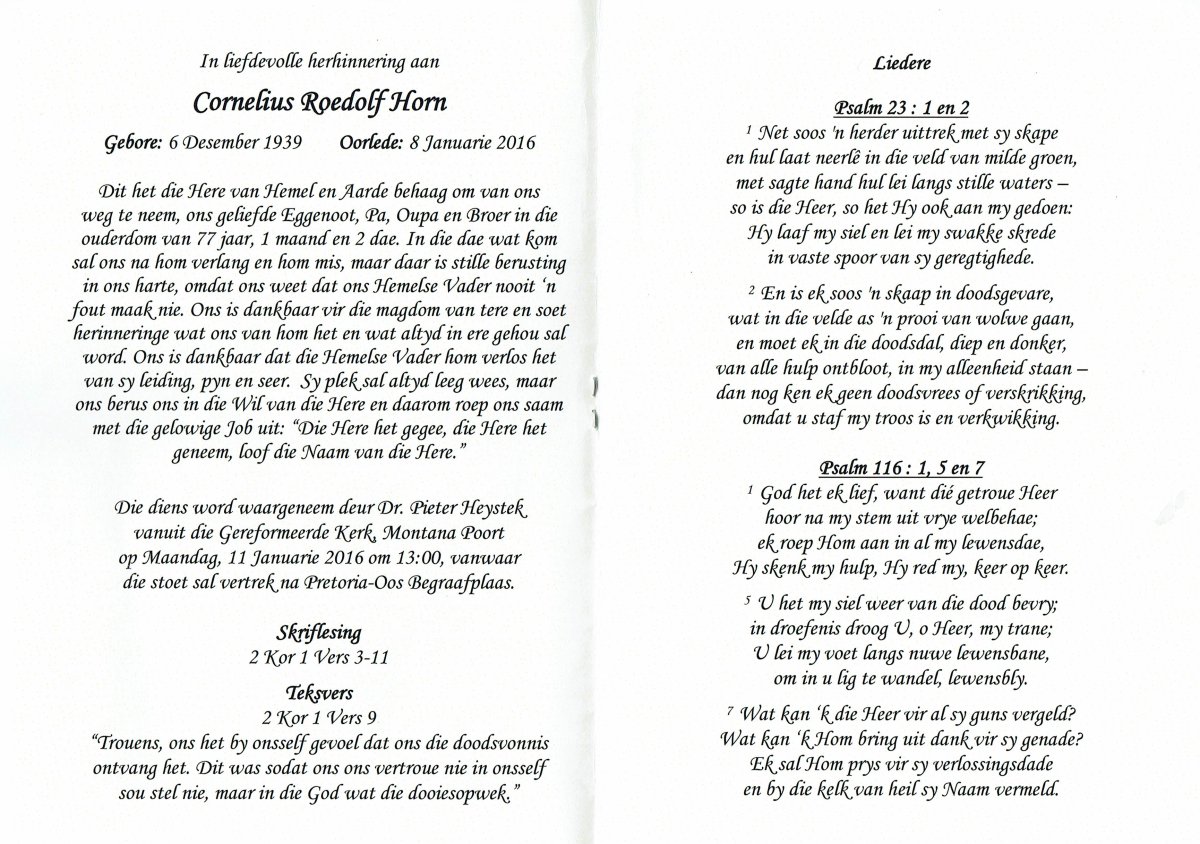 In liefdevolle herhinnering aan
Cornelius Roedolf Horn
Gebore: 6 Desember 1939 Oorlede: 8 Januarie 2016
Dit het die Here van Hemel en Aarde behaag om van ons
weg te neem, ons geliefde Eggenoot, Pa, Oupa en Broer in die
ouderdom van 77 jaar, 1 maand en 2 dae. In die dae wat kom
sal ons na hom verlang en hom mis, maar daar is stille berusting
in ons harte, omdat ons weet dat ons Hemelse Vader nooit ‘n
fout maak nie. Ons is dankbaar vir die magdom van tere en soet
herinneringe wat ons van hom het en wat altyd in ere gehou sal
word. Ons is dankbaar dat die Hemelse Vader hom verlos het
van sy leiding, pyn en seer. Sy plek sal altyd leeg wees, maar
ons berus ons in die Wil van die Here en daarom roep ons saam
met die gelowige Job uit: “Die Here het gegee, die Here het
geneem, loof die Naam van die Here.”
Die diens word waargeneem deur Dr. Pieter Heystek
vanuit die Gereformeerde Kerk, Montana Poort
op Maandag, 11 Januarie 2016 om 13:00, vanwaar
die stoet sal vertrek na Pretoria-Oos Begraafplaas.
Skriflesing
2 Kor 1 Vers 3-11
Teksvers
2 Kor 1 Vers 9
“Trouens, ons het by onsself gevoel dat ons die doodsvonnis
ontvang het. Dit was sodat ons ons vertroue nie in onsself
sou stel nie, maar in die God wat die dooiesopwek.”
Liedere
Psalm 23 : 1 en 2
¹ Net soos 'n herder uittrek met sy skape
en hul laat neerlê in die veld van milde groen,
met sagte hand hul lei langs stille waters –
so is die Heer, so het Hy ook aan my gedoen:
Hy laaf my siel en lei my swakke skrede
in vaste spoor van sy geregtighede.
² En is ek soos 'n skaap in doodsgevare,
wat in die velde as 'n prooi van wolwe gaan,
en moet ek in die doodsdal, diep en donker,
van alle hulp ontbloot, in my alleenheid staan –
dan nog ken ek geen doodsvrees of verskrikking,
omdat u staf my troos is en verkwikking.
Psalm 116 : 1, 5 en 7
¹ God het ek lief, want dié getroue Heer
hoor na my stem uit vrye welbehae;
ek roep Hom aan in al my lewensdae,
Hy skenk my hulp, Hy red my, keer op keer.
⁵ U het my siel weer van die dood bevry;
in droefenis droog U, o Heer, my trane;
U lei my voet langs nuwe lewensbane,
om in u lig te wandel, lewensbly.
⁷ Wat kan ‘k die Heer vir al sy guns vergeld?
Wat kan ‘k Hom bring uit dank vir sy genade?
Ek sal Hom prys vir sy verlossingsdade
en by die kelk van heil sy Naam vermeld.